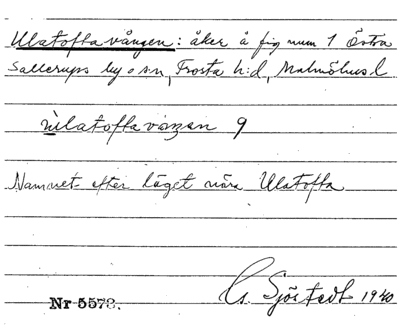 Ulatoftavången: åker å fig num 1 Östra
Sallerups by o sn, Frosta h:d, Malmöhus l
ùlatoftavåŋen 9
Namnet efter läget nära Ulatofta
G. Sjöstedt 1940
Nr 5573.